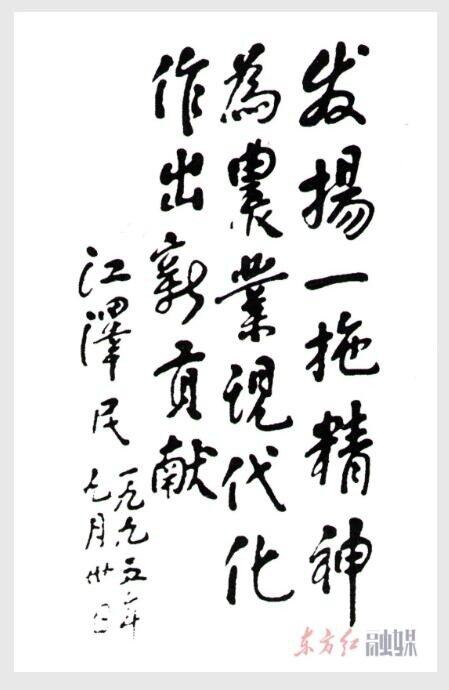 发揚一拖精神
為農業現代化
作出新貢献
江澤民
一九九五年
七月卅日
东方红融媒